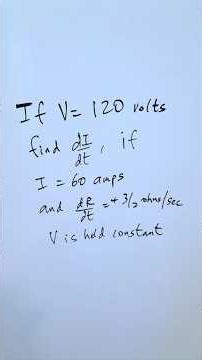 If V = 120 volts
find dI/dt, if
I = 60 amps
and dR/dt = + 3/2 ohms/sec
V is held constant